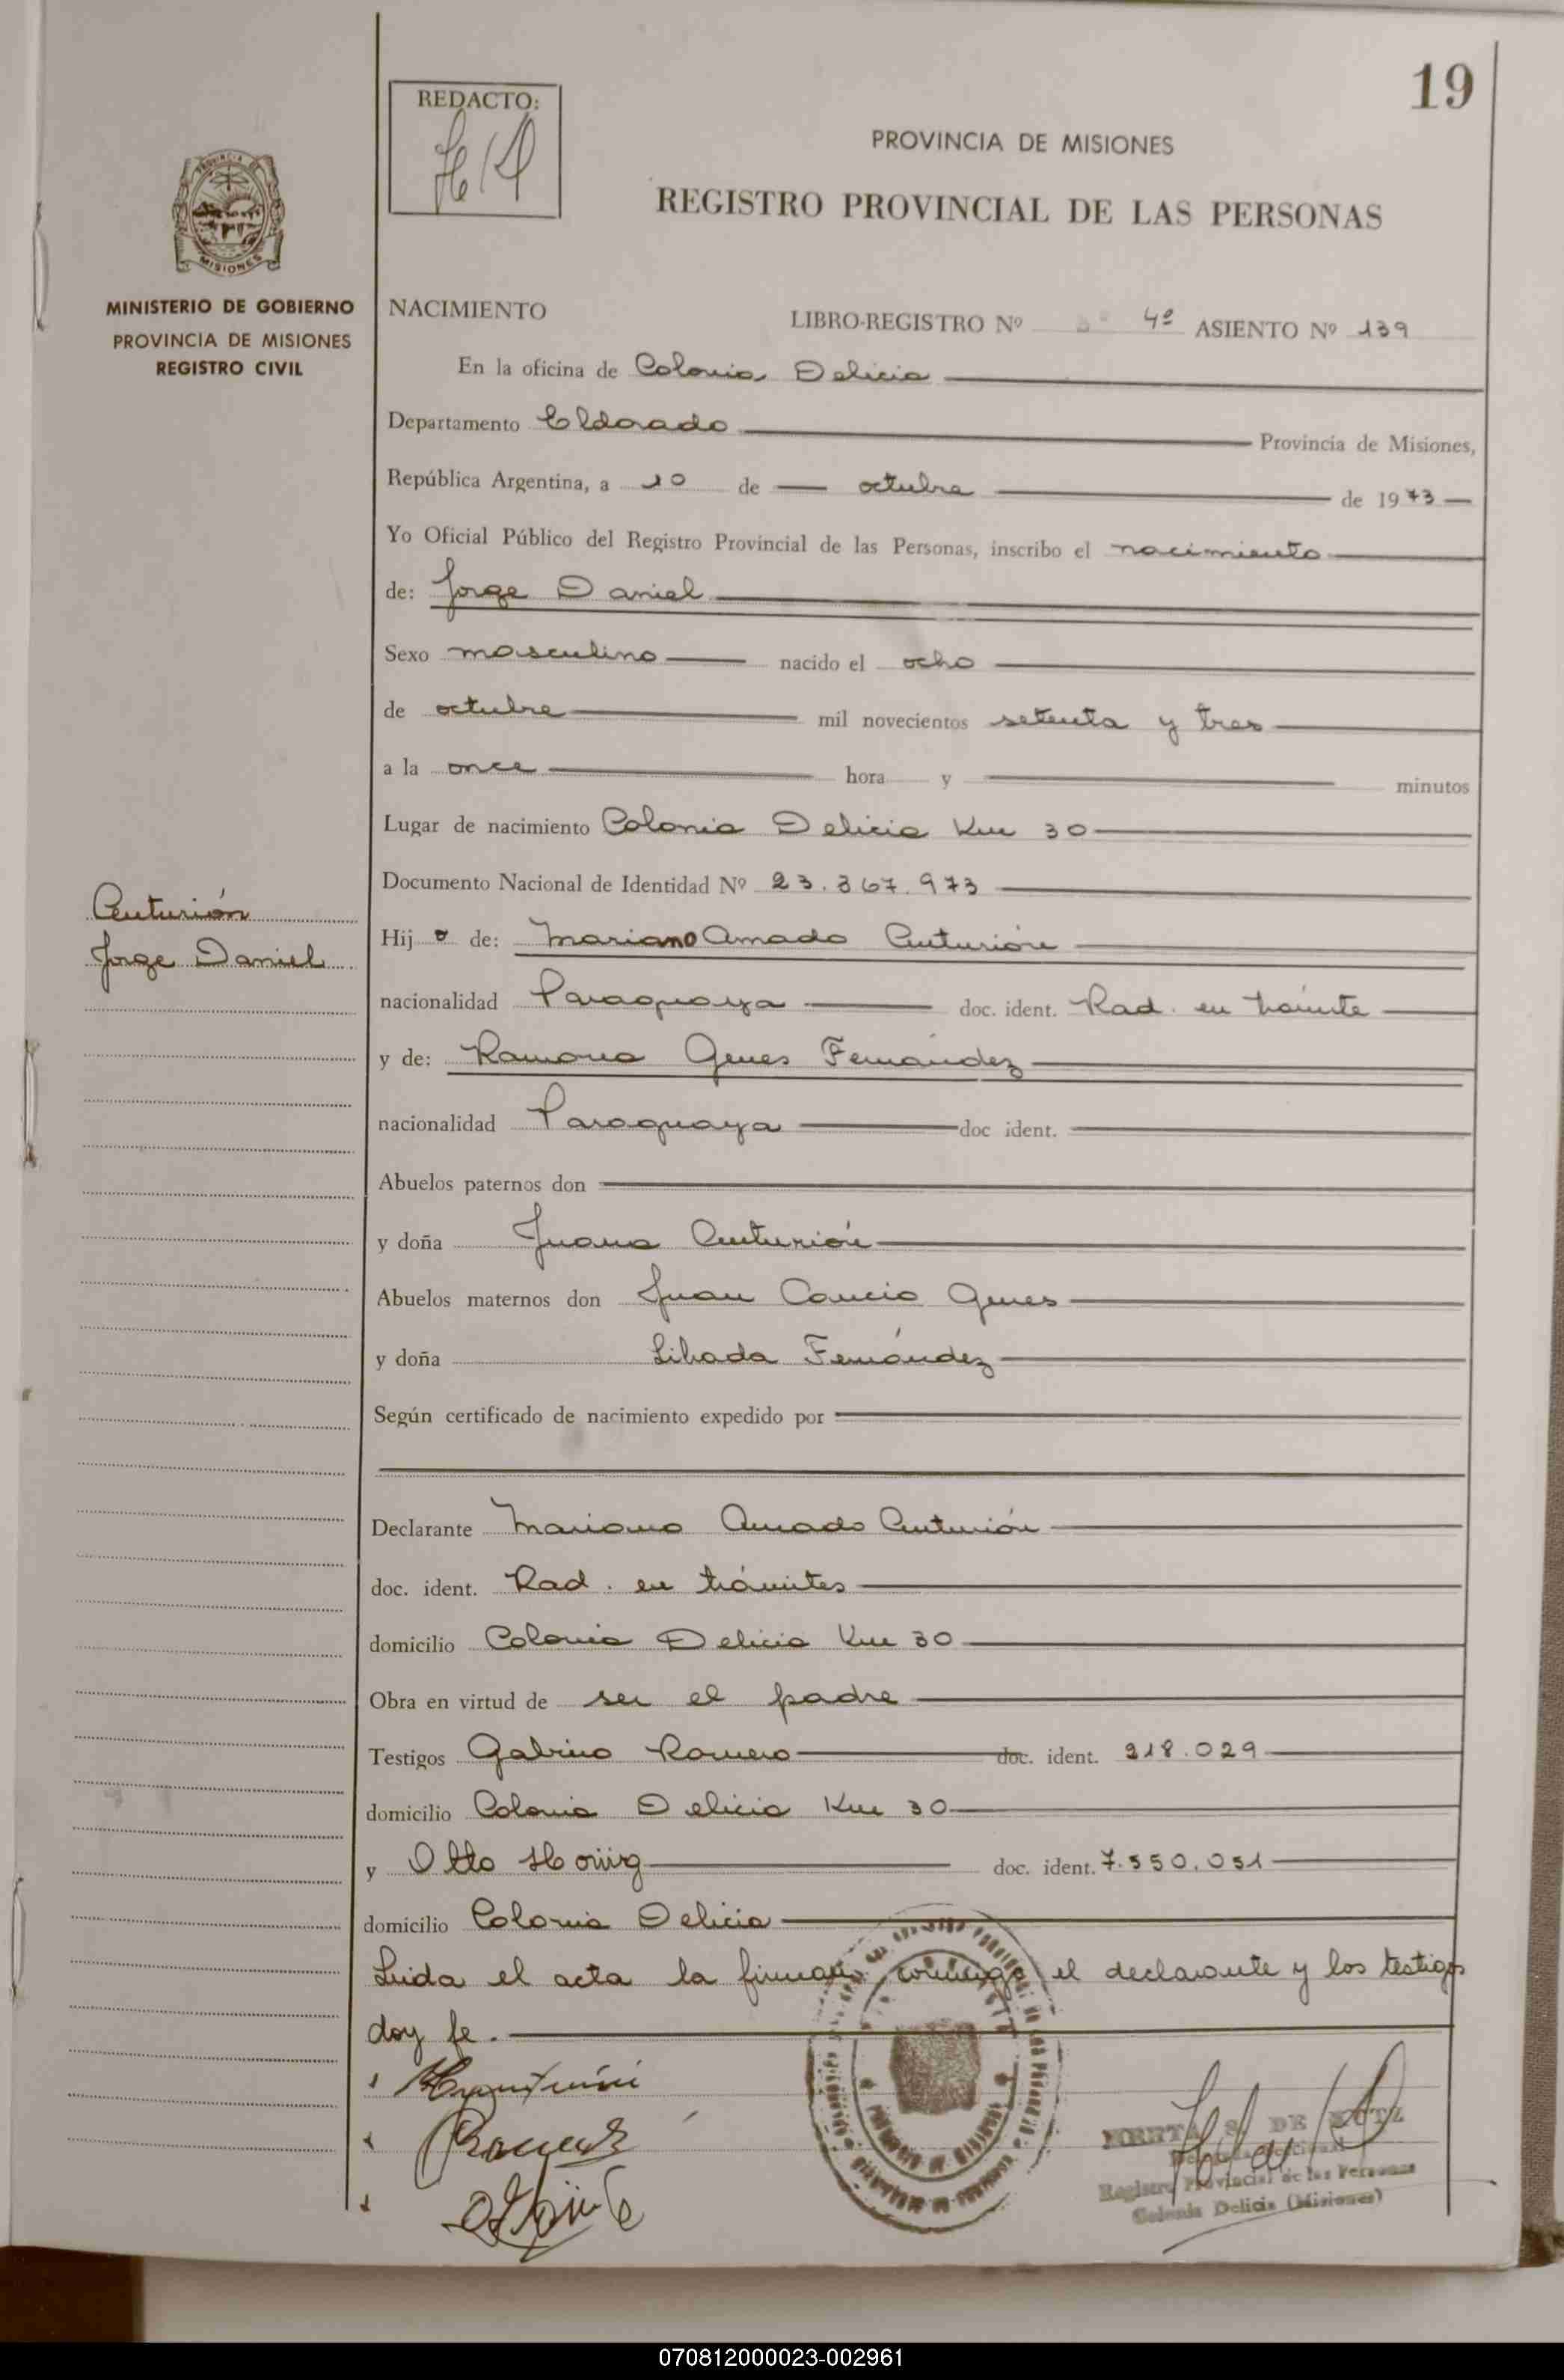 19
REDACTO:
PROVINCIA DE MISIONES
REGISTRO PROVINCIAL DE LAS PERSONAS
MISIONES
MINISTERIO DE GOBIERNO
PROVINCIA DE MISIONES
REGISTRO CIVIL
NACIMIENTO LIBRO-REGISTRO Nº 4º ASIENTO Nº 139
En la oficina de Colonia Delicia
Departamento Eldorado Provincia de Misiones,
República Argentina, a 10 de octubre de 1973
Yo Oficial Público del Registro Provincial de las Personas, inscribo el nacimiento
de: Jorge Daniel
Sexo masculino nacido el ocho
de octubre mil novecientos setenta y tres
a la once hora y minutos
Lugar de nacimiento Colonia Delicia Km 30
Documento Nacional de Identidad Nº 23.367.973
Centurión
Jorge Daniel
Hijo de: Mariano Amado Centurión
nacionalidad Paraguaya doc. ident. Rad. en trámite
y de: Ramona Genes Fernández
nacionalidad Paraguaya doc ident.
Abuelos paternos don
y doña Juana Centurión
Abuelos maternos don Juan Cancio Genes
y doña Librada Fernández
Según certificado de nacimiento expedido por
Declarante Mariano Amado Centurión
doc. ident. Rad. en trámites
domicilio Colonia Delicia Km 30
Obra en virtud de ser el padre
Testigos Gabino Romero doc. ident. 218.029
domicilio Colonia Delicia Km 30
y Otto Hönig doc. ident. 7.550.051
domicilio Colonia Delicia
Leida el acta la firman conmigo el declarante y los testigos
doy fe.
HERTA S. DE
Registro Provincial de las Personas
Colonia Delicia (Misiones)
070812000023-002961